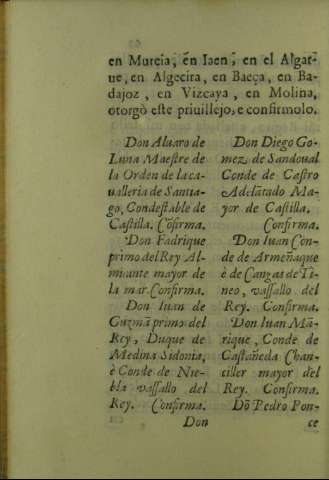 en Murcia, ēn Iaen, en el Algar-
ue, en Algecira, en Baeça, en Ba-
dajoz, en Vizcaya, en Molina,
otorgò este priuillejo, e confirmolo.
Don Aluaro de
Luna Maestre de
la Orden de la ca-
ualleria de Santia-
go, Condestable de
Castilla. Cōfirma.
Don Fadrique
primo del Rey Al-
mirante mayor de
la mar. Confirma.
Don Iuan de
Guzmā primo del
Rey, Duque de
Medina Sidonia,
è Conde de Nie-
bla vassallo del
Rey. Confirma.
Don
Don Diego Go-
mez de Sandoual
Conde de Castro
Adelātado Ma-
yor de Castilla.
Confirma.
Don Iuan Con-
de de Armeñaque
è de Cangas de Ti-
neo, vassallo del
Rey. Confirma.
Don Iuan Mā-
rique, Conde de
Castañeda Chan-
ciller mayor del
Rey. Confirma.
Dō Pedro Pon-
ce